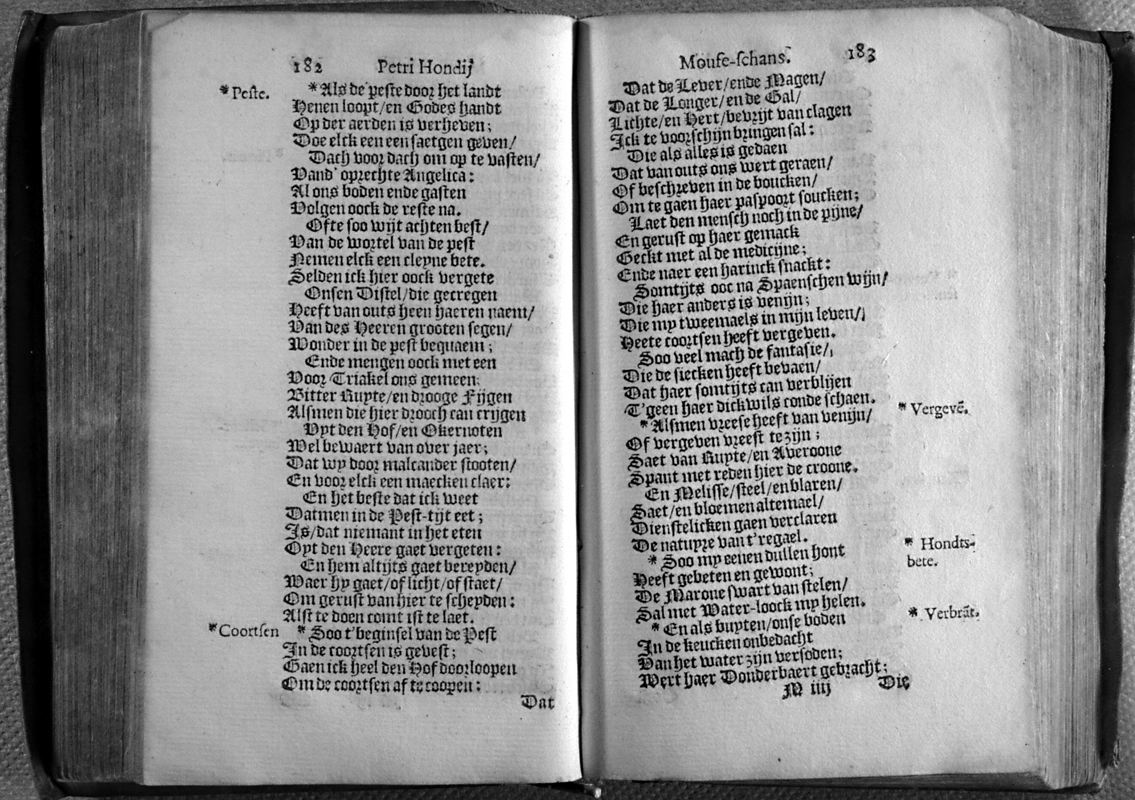 182 Petri Hondij
* Peste.
* Als de peste door het landt
Henen loopt/en Godes handt
Op der aerden is verheven;
Doe elck een een saetgen geven/
Dach voor dach om op te vasten/
Vand' oprechte Angelica:
Al ons boden ende gasten
Volgen oock de reste na.
Ofte soo wijt achten best/
Van de wortel van de pest
Nemen elck een cleyne bete.
Selden ick hier oock vergete
Onsen Distel/die gecregen
Heeft van outs heen haeren naem/
Van des Heeren grooten segen/
Wonder in de pest bequaem;
Ende mengen oock met een
Voor Triakel ons gemeen:
Bitter Ruyte/en drooge Fijgen
Alsmen die hier drooch can crijgen
Vyt den Hof/en Okernoten
Wel bewaert van over jaer;
Dat wy door malcander stooten/
En voor elck een maecken claer:
En het beste dat ick weet
Datmen in de Pest-tijt eet;
Is/dat niemant in het eten
Opt den Heere gaet vergeten:
En hem altijts gaet bereyden/
Waer hy gaet/of licht/of staet/
Om gerust van hier te scheyden:
Alst te doen comt ist te laet.
* Coortsen
* Soo t'beginsel van de Pest
In de coortsen is gevest;
Gaen ick heel den Hof doorloopen
Om de coortsen af te coopen:
Dat
Mouse-schans. 183
Dat de Lever/ende Magen/
Dat de Longer/en de Gal/
Lichte/en Hert/bevrijt van clagen
Ick te voorschijn bringen sal:
Die als alles is gedaen
Dat van outs ons wert geraen/
Of beschreven in de boucken/
Om te gaen haer paspoort soucken;
Laet den mensch noch in de pijne/
En gerust op haer gemack
Geckt met al de medicijne;
Ende naer een harinck snackt:
Somtijts oot na Spaenschen wijn/
Die haer anders is venijn;
Die my tweemaels in mijn leven/
Heete coortsen heeft vergeven.
Soo veel mach de fantasie/
Die de siecken heeft bevaen/
Dat haer somtijts can verblijen
T'geen haer dickwils conde schaen.
* Vergevē.
* Alsmen vreese heeft van venijn/
Of vergeven vreest te zijn;
Saet van Ruyte/en Averoone
Spant met reden hier de croone.
En Melisse/steel/en blaren/
Saet/en bloemen altemael/
Dienstelicken gaen verclaren
De natuyre van t'regael.
* Hondts-
bete.
* Soo my eenen dullen hont
Heeft gebeten en gewont;
De Marone swart van stelen/
Sal met Water-loock my helen.
* Verbrāt.
* En als buyten/onse boden
In de keucken onbedacht
Van het water zijn versoden;
Wert haer Donderbaert gebracht;
M iiij Die